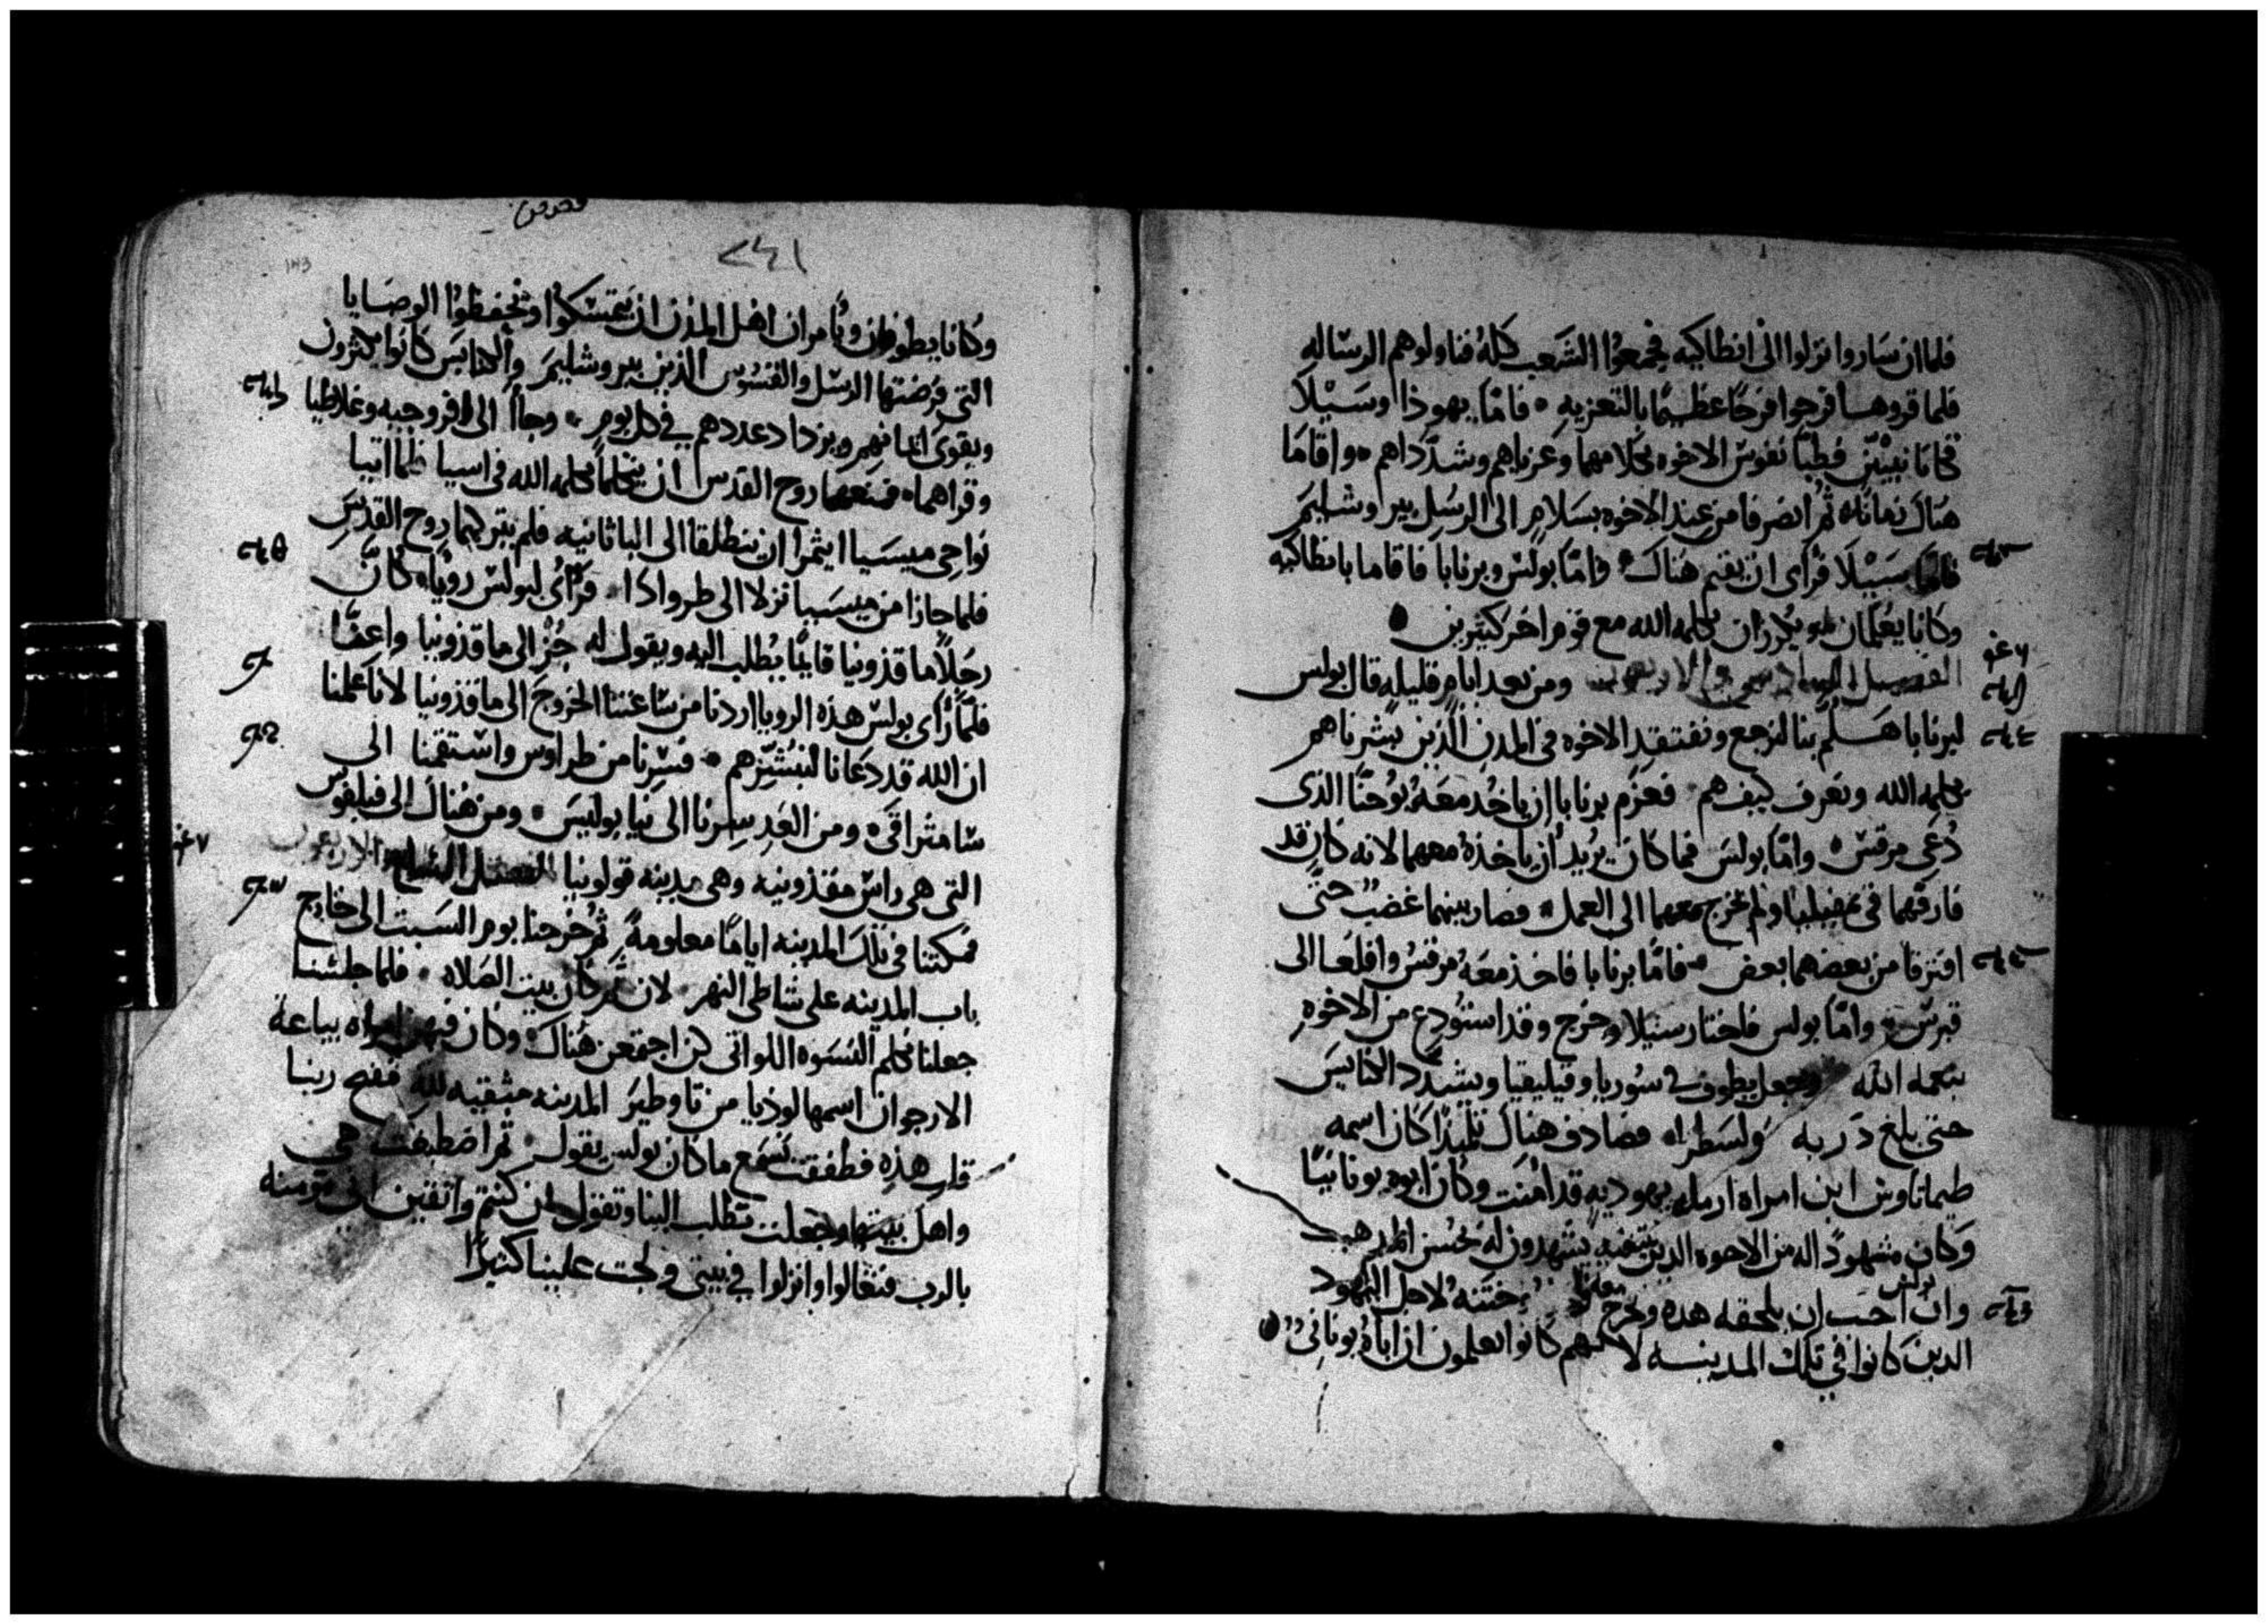 فلما ان ساروا نزلوا الى انطاكيه فجمعوا الشعب كله فناولوهم الرساله
فلما قروها فرحوا فرحًا عظيمًا بالتعزيه • فامّا يهوذا وسَيْلا
فكانا نبيّين فطيّبا نفوس الاخوه بكلامهما وعزياهم وشدّداهم • واقاما
هناك زمانًا • ثم انصرفا من عند الاخوه بسلام الى الرسل بيروشليم
فامّا سَيْلا فرأى ان يقيم هناك • وامّا بولس وبرنابا فاقاما بانطاكيه
وكانا يعلّمان ويكرزان بكلمة الله مع قوم اخر كثيرين •
الفصل السادس والاربعون ومن بعد ايام قليله قال بولس
لبرنابا هَلُمّ بنا لنرجع ونفتقد الاخوه فى المدن الذين بشرناهم
بكلمه الله ونعرف كيف هم • فعزم برنابا ان ياخذ معه يُوحنّا الذى
دُعى مرقس • وامّا بولس فما كان يريد أن ياخذه معهما لانه كان قد
فارقهما فى ولم يخرج معهما الى العمل • فصار بينهما غضب حتى
افترقا من بعضهما بعض • فامّا برنابا فاخذ معه مرقس واقلعا الى
قبرس • وامّا بولس فاختار سيلا وخرج وقد استودع من الاخوه
نعمه الله وجعل يطوف فى سُوريا وقيليقيا ويشدّد الكنايس
حتى بلغ دربه ولسطراه فصادف هناك تلميذًا كان اسمه
طيماتاوس ابن امراه ارمله يهوديه قد امنت وكان ابوه يونانيًا
وكان مشهودًا له من الاخوه الذين يشهدون له بحُسن المذهب
بولس
وان احب ان يلحقه هذه وخرج ختنه لاجل اليهود
الذين كانوا فى تلك المدينه لانهم كانوا يعلمون ان اباه يونانى •
وكانا يطوفان ويأمران اهل المدن ان يتمسكوا ويحفظوا الوصايا
التى فرضتها الرسل والقسوس الذين بيروشليم والكنايس كانوا يكثرون
ويقوى ايمانهم ويزداد عددهم فى كل يوم • وجاأ الى افروجيه وغلاطيا
وقراهما • فمنعهما روح القدس ان يتكلما بكلمه الله فى اسيا فلما اتيا
نواحى ميسيا ايتمرا ان ينطلقا الى الباثانيه فلم يتركهما روح القدس
فلما جازا من ميسيا نزلا الى طرواذا • فرأى لبولس رويا • كانّ
رجلاً ماقذونيا قايمًا يطلب اليه ويقول له جُز الى ماقذونيا واعنّا
فلمّا رأى بولس هذه الرويا اردنا من ساعتنا الخروج الى ماقذونيا لانا علمنا
ان الله قد دعانا لنبشّرهم • فسرنا من طراوس واستقمنا الى
ساموثراقى • ومن الغد سرنا الى نيا بوليس • ومن هناك الى فيلفوس
التى هى راس مقذونيه وهى مدينه قولونيا الفصل السابع والاربعون
فمكثنا فى تلك المدينه ايامًا معلومةً ثم خرجنا يوم السبت الى خارج
باب المدينه على شاطى النهر لان ثم كان بيت الصلاه • فلما جلسنا
جعلنا نكلم النسوه اللواتى كن اجتمعن هناك • وكان فيهن امراه بياعة
الارجوان اسمها لوذيا من ثاوطير المدينه متقيه لله ففتح ربنا
قلب هذه فطفقت تسمع ما كان بولس يقول • ثم اصطبغت هى
واهل بيتها وجعلت تطلب الينا وتقول ان كنتم واثقين انى مومنه
بالرب فتعالوا وانزلوا فى بيتى ولجت علينا كثيرًا